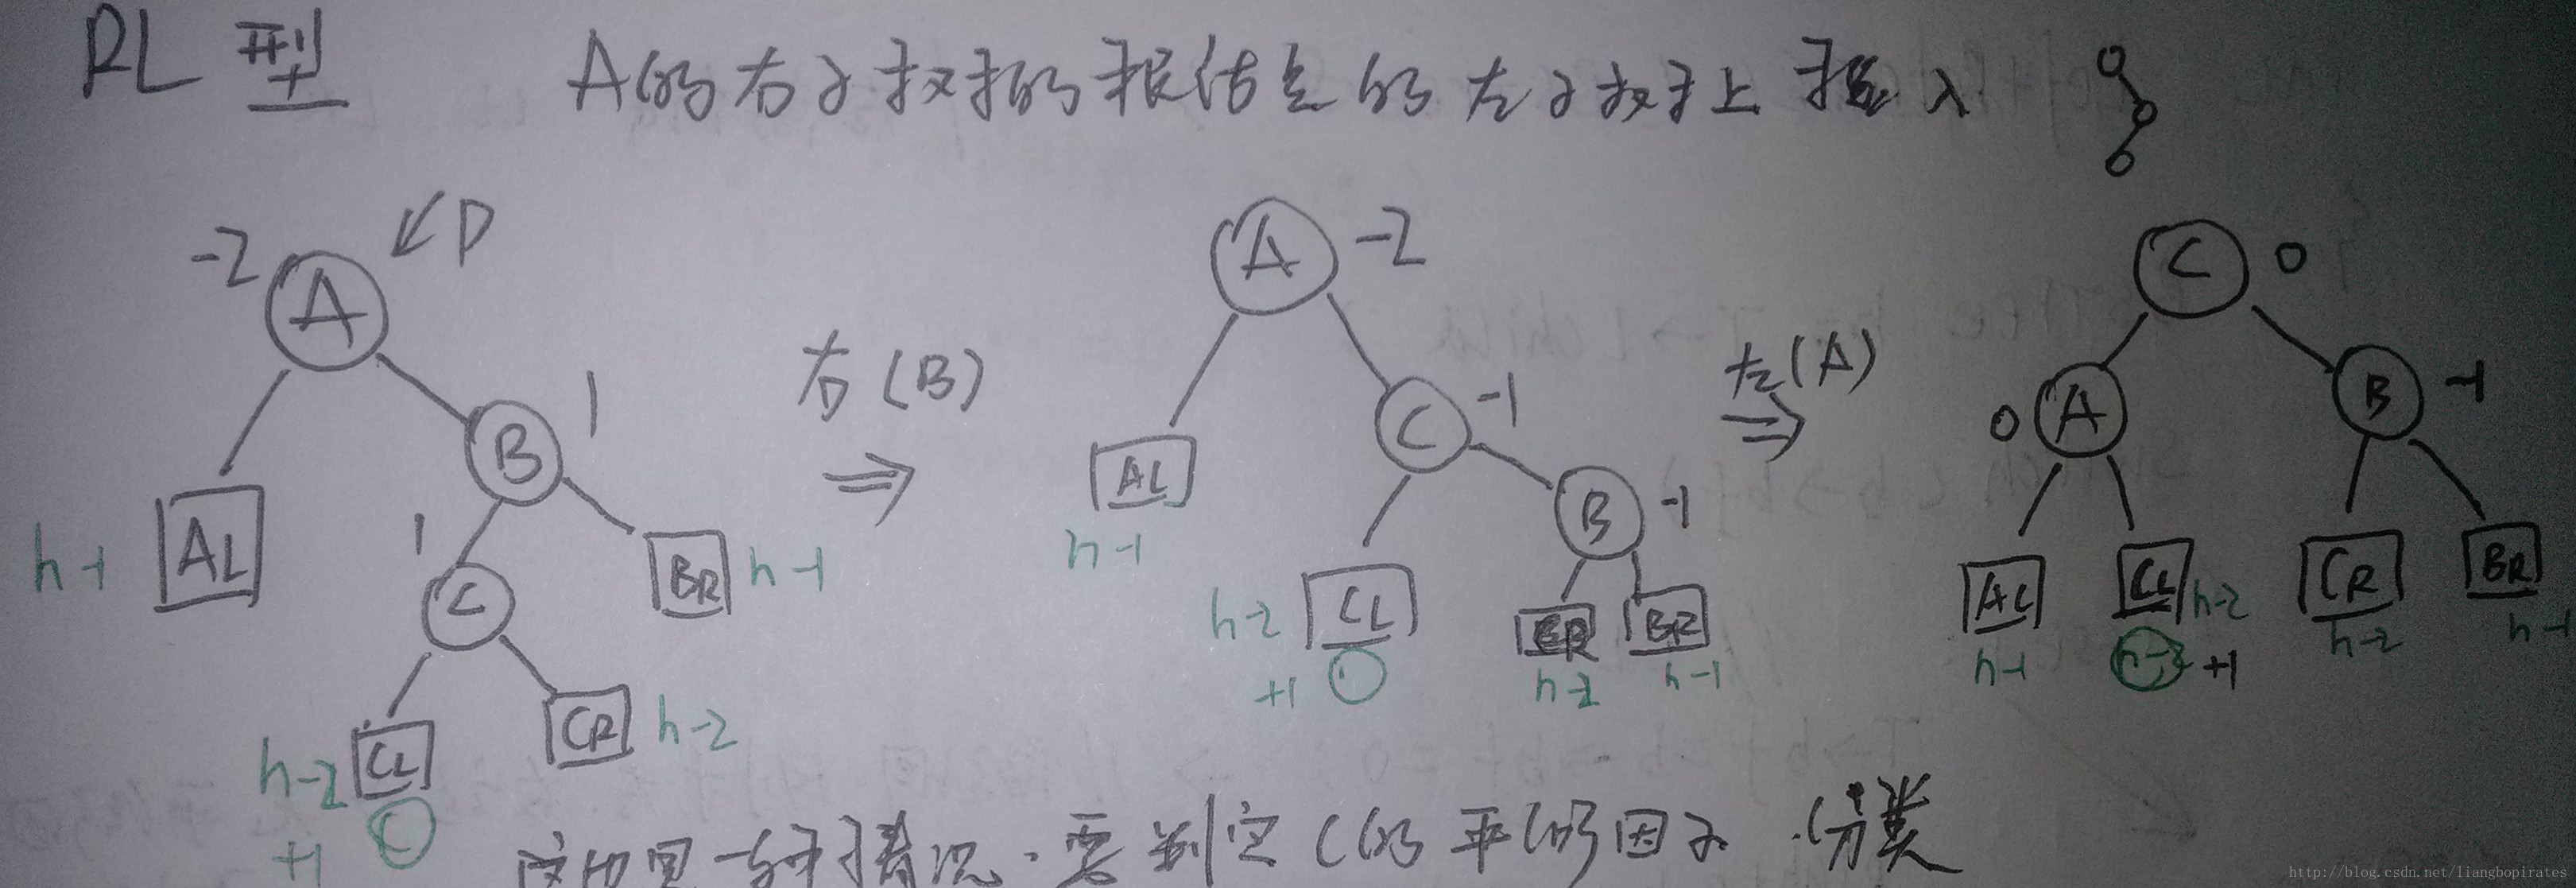 RL型 A的右子树的根结点的左子树上插入
-2 A ↙P
1 B
右(B)
⇒
A -2
C -1
B -1
左(A)
⇒
C 0
0 A
B -1
h-1 AL
1 C
BR h-1
AL
h-1
h-2 CL
+1
CR
h-2
BR
h-1
AL
h-1
CL h-2
+1
CR
h-2
BR
h-1
h-2 CL
+1
CR h-2
一种情况.要判定C的平衡因子.分类
http://blog.csdn.net/liangbopirates